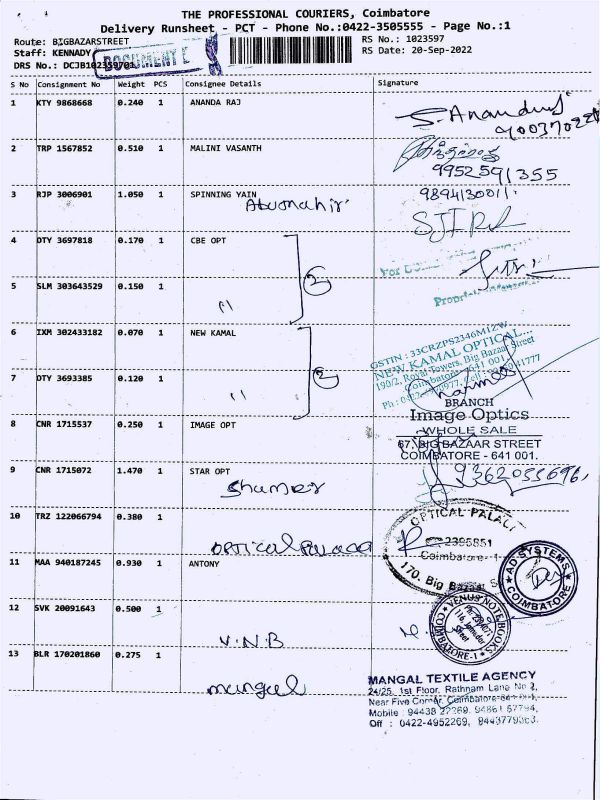 THE PROFESSIONAL COURIERS, Coimbatore
Delivery Runsheet - PCT - Phone No.:0422-3505555 - Page No.:1
Route: BIGBAZARSTREET
RS No.: 1023597
Staff: KENNADY
RS Date: 20-Sep-2022
DRS No.: DCJB102359701
DOCUMENT
S No Consignment No Weight PCS Consignee Details Signature
1 KTY 9868668 0.240 1 ANANDA RAJ
2 TRP 1567852 0.510 1 MALINI VASANTH
9952591355
3 RJP 3006901 1.050 1 SPINNING YAIN
9894130011
4 DTY 3697818 0.170 1 CBE OPT
2
5 SLM 303643529 0.150 1
"
6 IXM 302433182 0.070 1 NEW KAMAL
GSTIN : 33CRZPS2346M1ZW
NEW KAMAL OPTICAL
190/2, Royal Towers, Big Bazaar Street
Coimbatore - 641 001
7 DTY 3693385 0.120 1
"
2
BRANCH
8 CNR 1715537 0.250 1 IMAGE OPT
Image Optics
WHOLE SALE
67, BIG BAZAAR STREET
COIMBATORE - 641 001.
9 CNR 1715072 1.470 1 STAR OPT
10 TRZ 122066794 0.380 1
OPTICAL PALACE
OPTICAL PALACE
2395851
Coimbatore-1
170. Big Bazaar S
11 MAA 940187245 0.930 1 ANTONY
AD SYSTEMS
COIMBATORE
12 SVK 20091643 0.500 1
V.N.B
VENUS NOTE BOOKS
COIMBATORE-1
Street
13 BLR 170201860 0.275 1
mangal
MANGAL TEXTILE AGENCY
24/25, 1st Floor, Rathnam Lane No 2,
Near Five Corner, Coimbatore
Mobile : 94438 27269, 94861 57794,
Off : 0422-4952269, 9443779363.